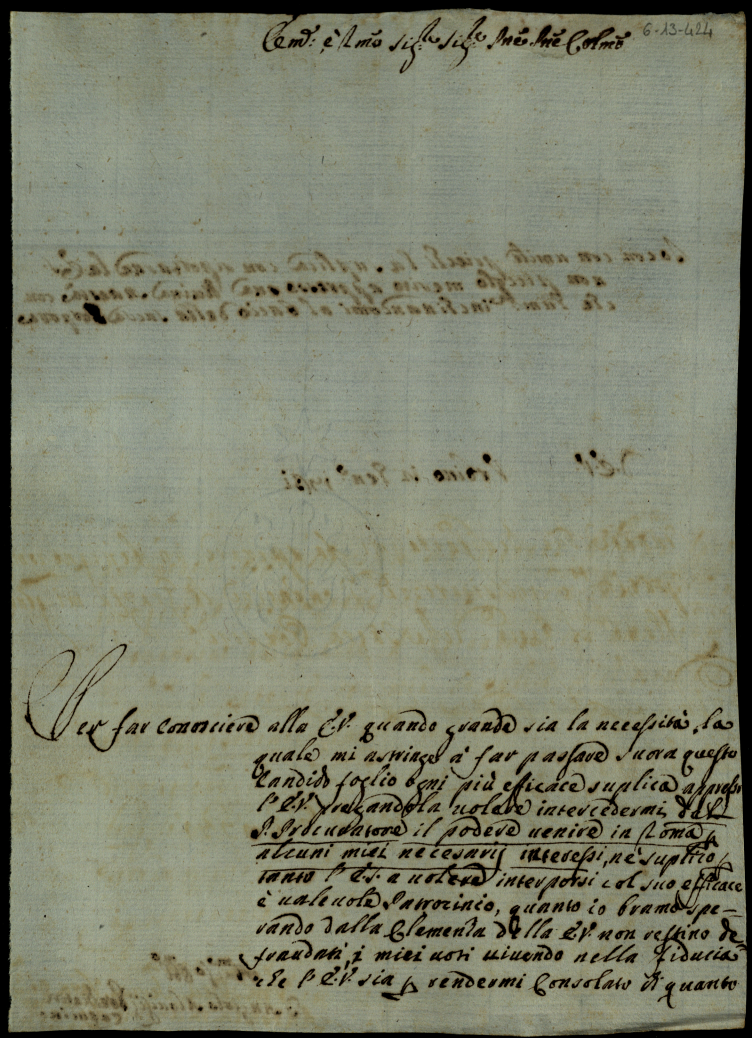 6-13-424
Em.o è R.mo Sig.re Sig.re Pne Pne Colmo
Per far conosciere alla E.V. quando grande sia la necessità, la
quale mi astringe à far passare suora questo
Candido foglio ogni più efficace suplica appresso
l'E.V. pregandola volere intercedermi dal
P. Procuratore il podere venire in Roma p
alcuni miei necesarij interessi, nè suplico
tanto l'E.V. a volere interporsi col suo efficace
è valevole Patrocinio, quanto io bramo spe-
rando dalla Clementa della E.V. non restino de
fraudati, i miei voti vivendo nella fiducia
che l'E.V. sia p rendermi Consolato di quanto